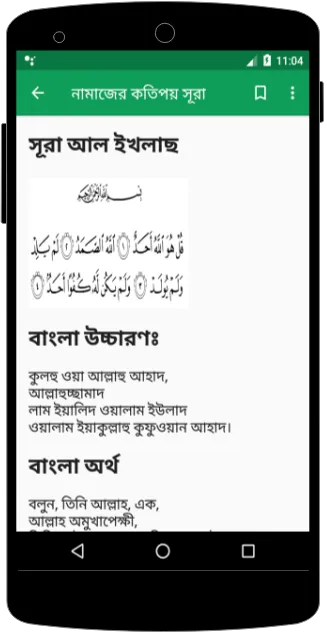 11:04
নামাজের কতিপয় সূরা
সূরা আল ইখলাছ
بِسْمِ اللَّهِ الرَّحْمَٰنِ الرَّحِيمِ
قُلْ هُوَ اللَّهُ أَحَدٌ ١ اللَّهُ الصَّمَدُ ٢ لَمْ يَلِدْ
وَلَمْ يُولَدْ ٣ وَلَمْ يَكُن لَّهُ كُفُوًا أَحَدٌ ٤
বাংলা উচ্চারণঃ
কুলহু ওয়া আল্লাহু আহাদ,
আল্লাহুচ্ছামাদ
লাম ইয়ালিদ ওয়ালাম ইউলাদ
ওয়ালাম ইয়াকুল্লাহু কুফুওয়ান আহাদ।
বাংলা অর্থ
বলুন, তিনি আল্লাহ, এক,
আল্লাহ অমুখাপেক্ষী,